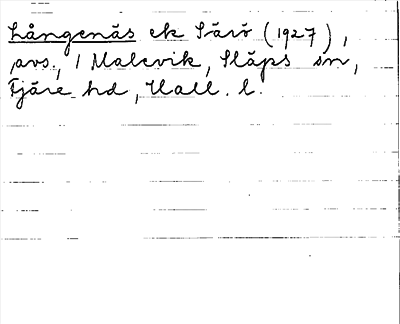 Långenäs ek Särö (1927),
avs., 1 Malevik, Släps sn,
Fjäre hd, Hall. l.